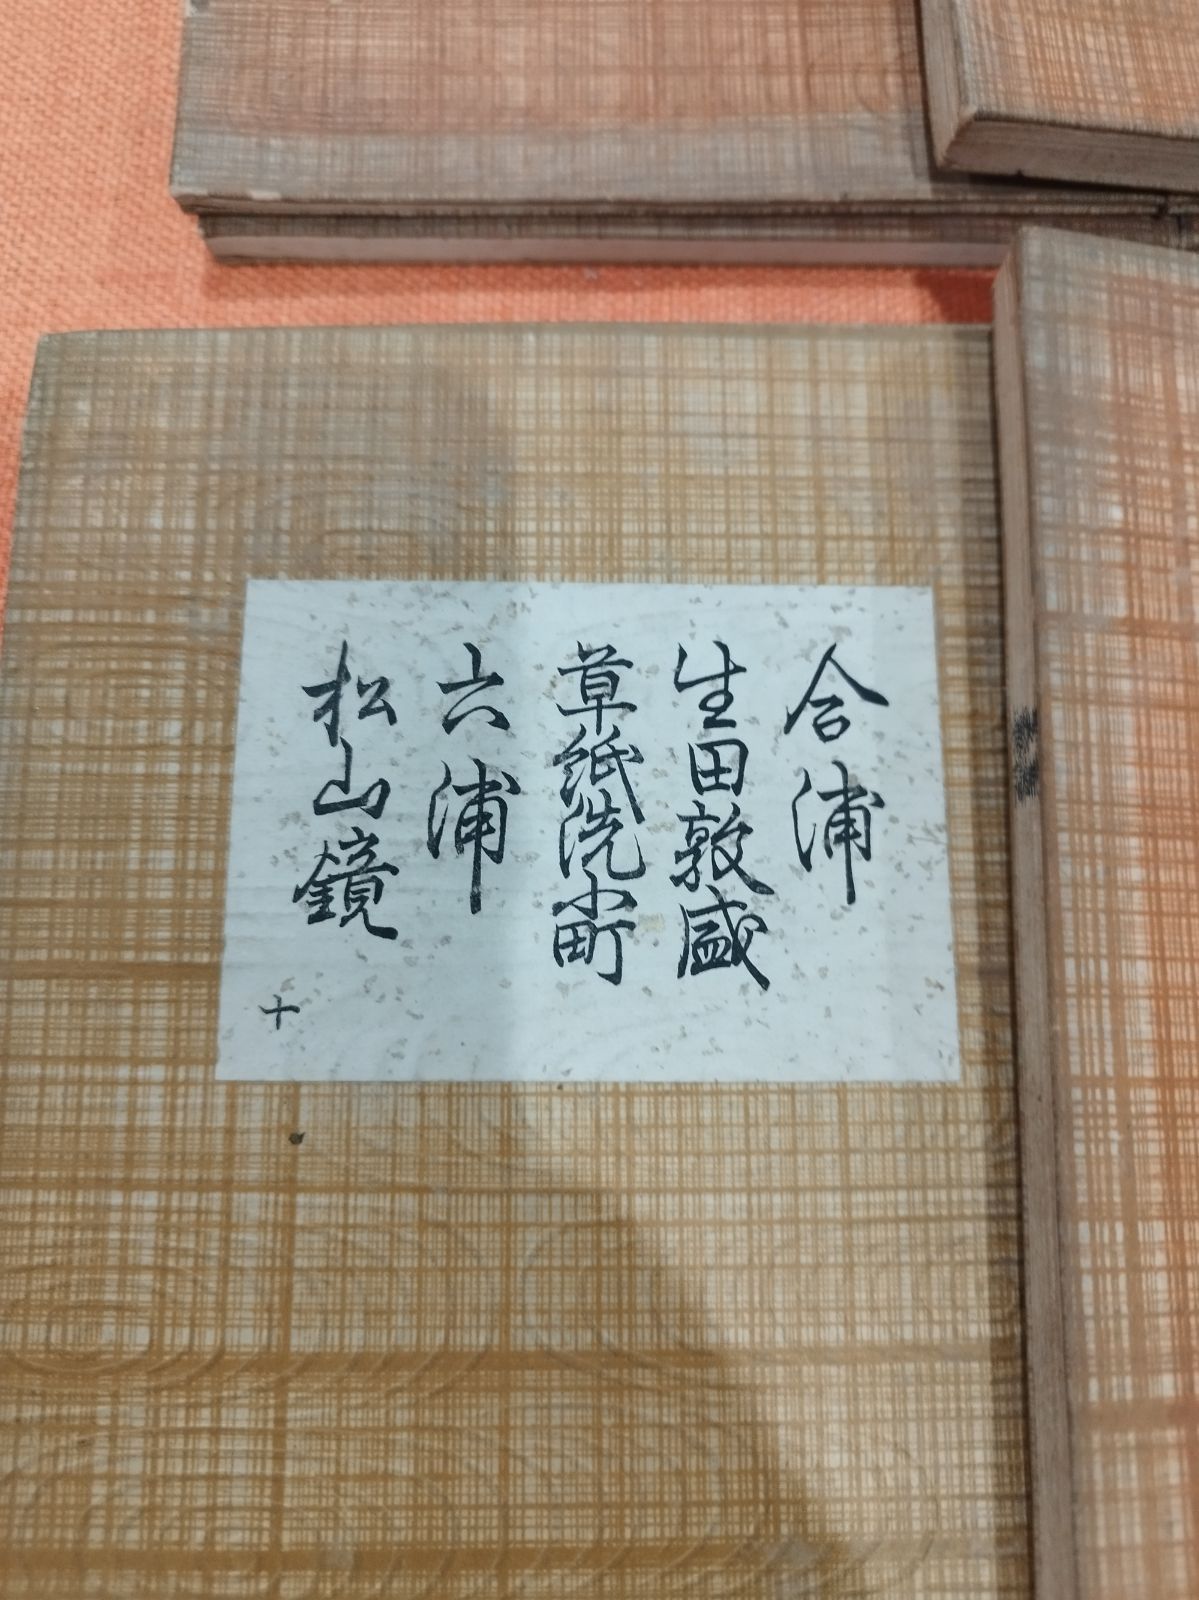 合浦
生田敦盛
草紙洗小町
六浦
松山鏡
十